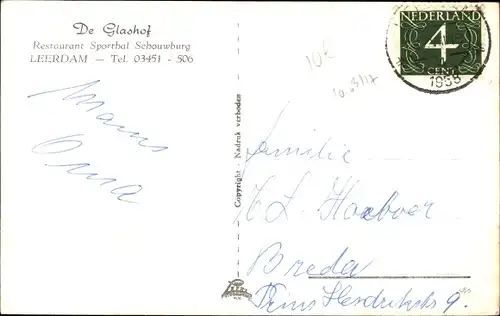 De Glashof
Restaurant Sporthal Schouwburg
LEERDAM — Tel. 03451 - 506
Oma
Copyright - Nadruk verboden
NEDERLAND
4
CENT
1958
10€
Familie
Breda
Prins Hendrikstr 9.